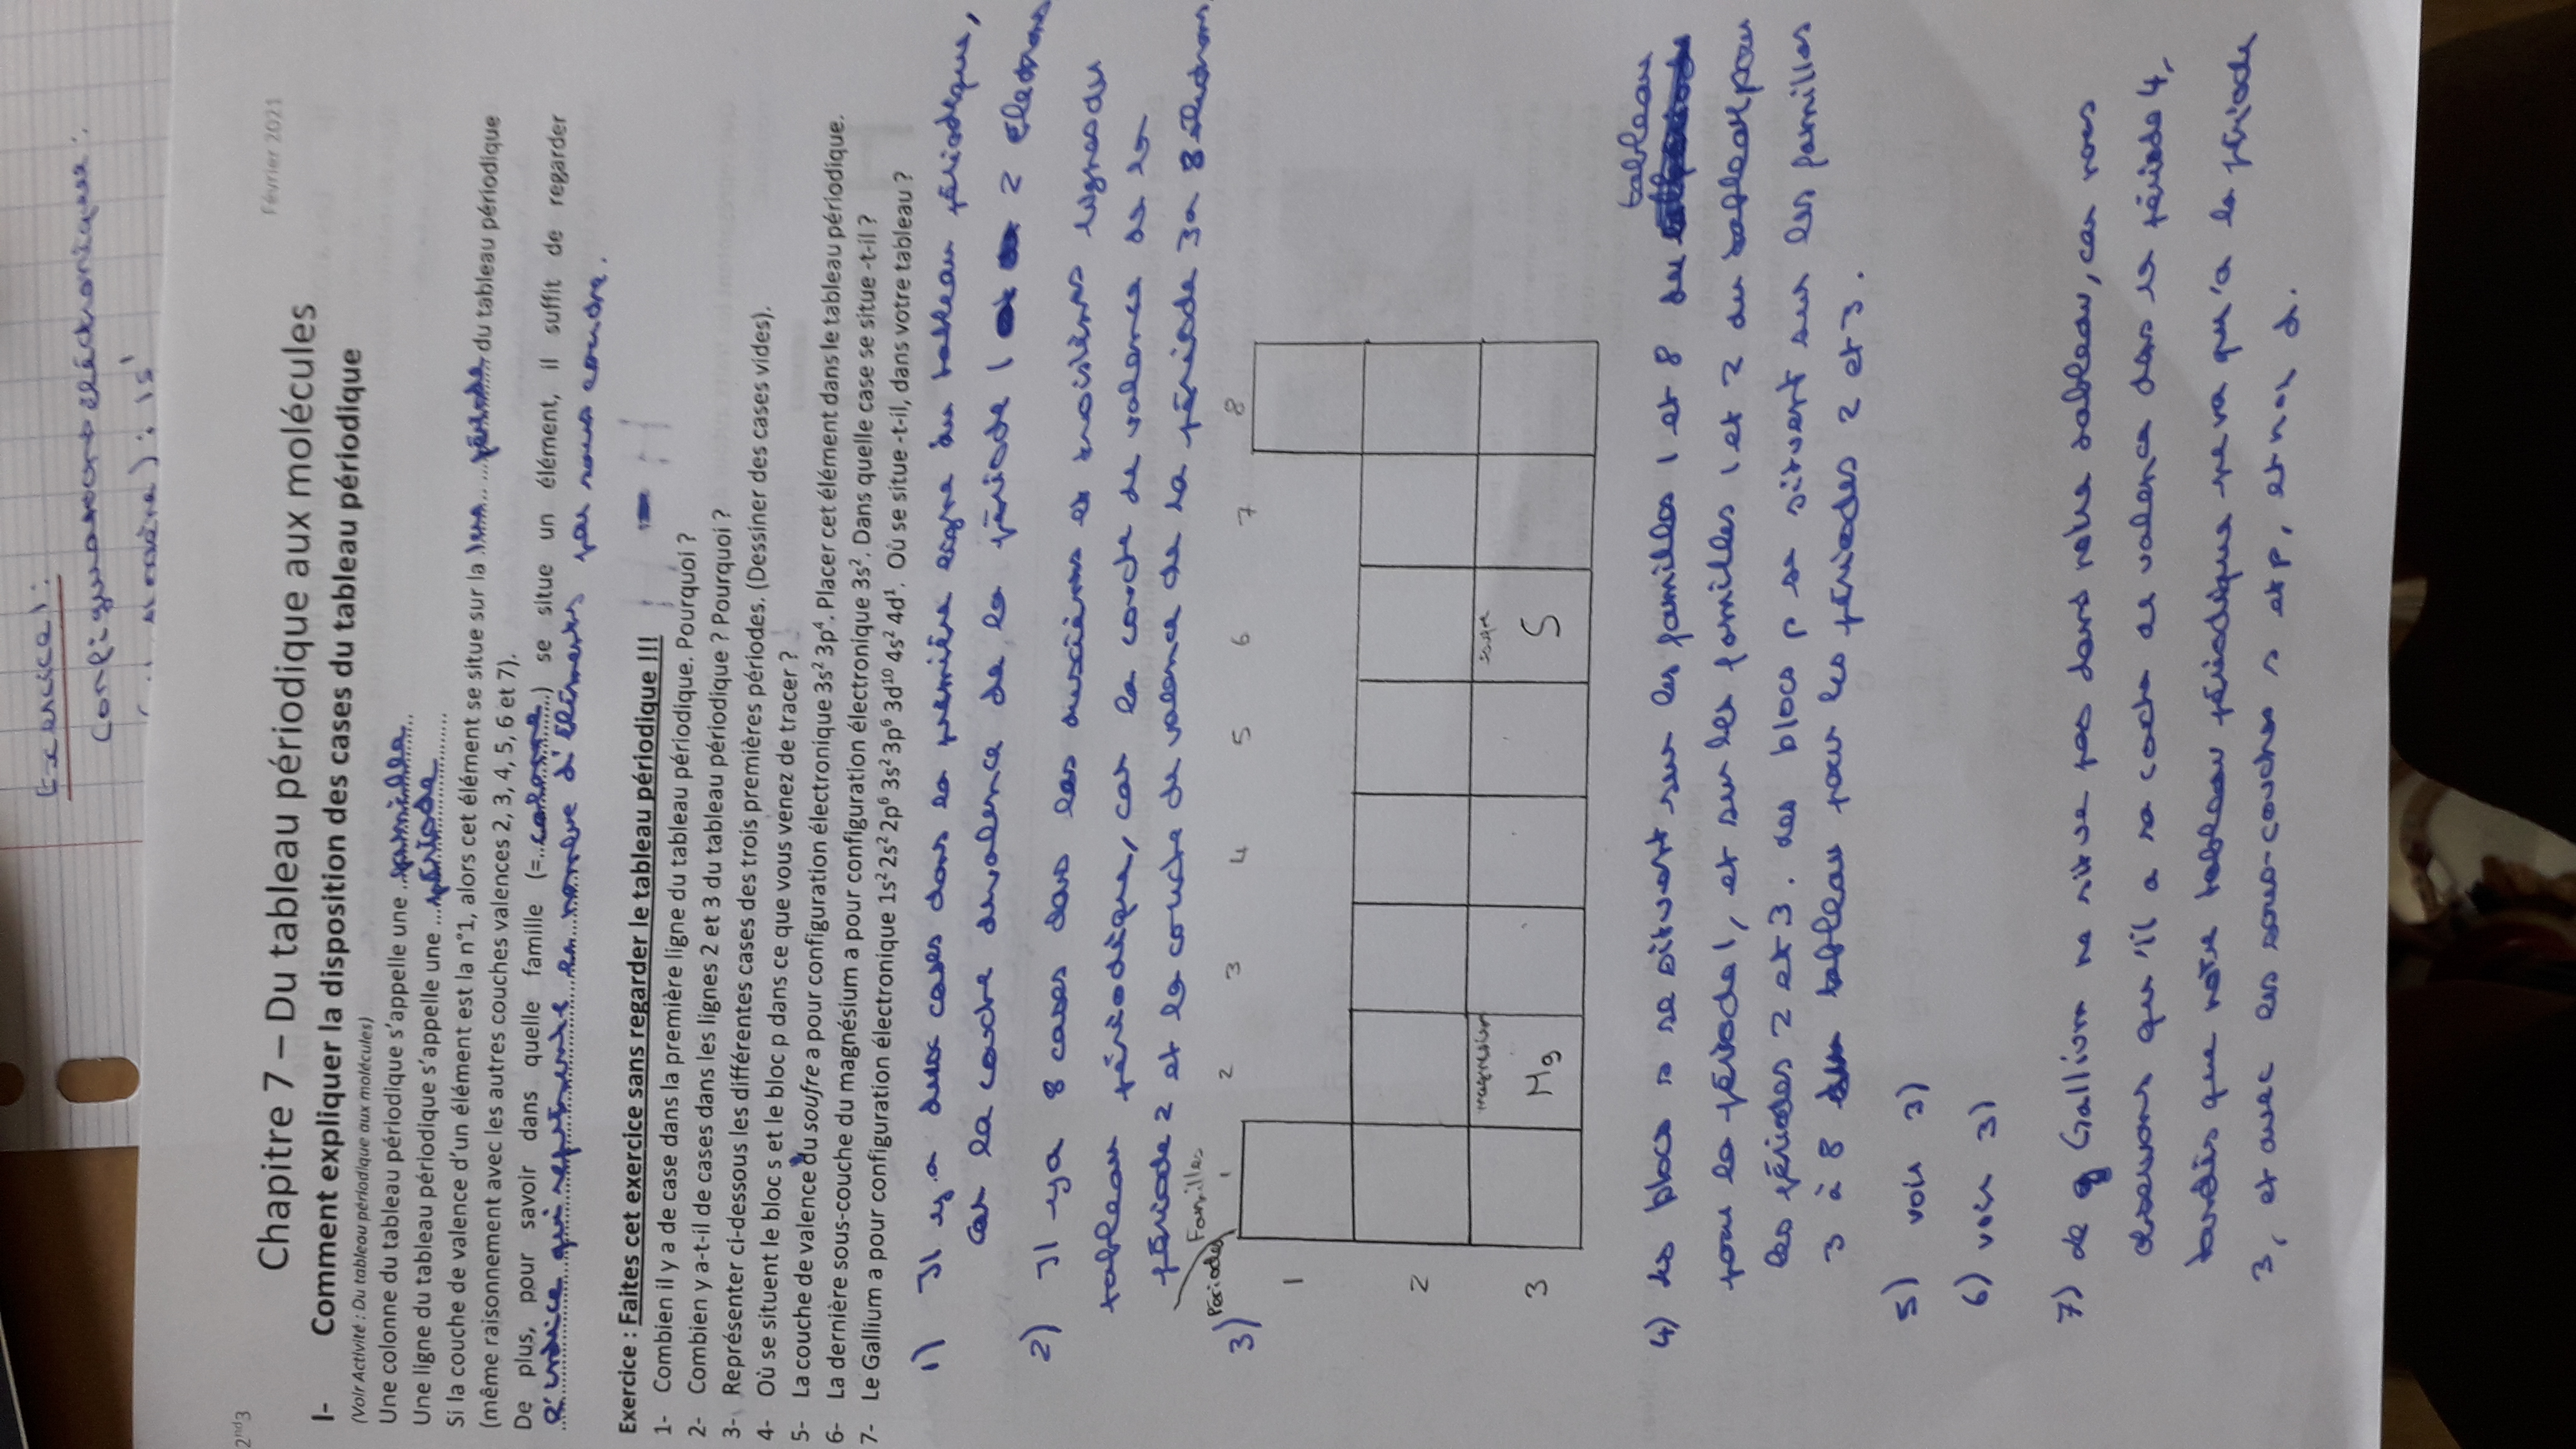 Exercice 1 :
Configurations électroniques :
) : 1s¹
2nd3
Février 2021
Chapitre 7 – Du tableau périodique aux molécules
I- Comment expliquer la disposition des cases du tableau périodique
(Voir Activité : Du tableau périodique aux molécules)
Une colonne du tableau périodique s'appelle une ...famille...
Une ligne du tableau périodique s'appelle une ...période...
Si la couche de valence d'un élément est la n°1, alors cet élément se situe sur la 1ère ... période du tableau périodique
(même raisonnement avec les autres couches valences 2, 3, 4, 5, 6 et 7).
De plus, pour savoir dans quelle famille (=..colonne...) se situe un élément, il suffit de regarder
l'indice qui représente le nombre d'éléments par sous couche.
Exercice : Faites cet exercice sans regarder le tableau périodique !!!
1- Combien il y a de case dans la première ligne du tableau périodique. Pourquoi ?
2- Combien y a-t-il de cases dans les lignes 2 et 3 du tableau périodique ? Pourquoi ?
3- Représenter ci-dessous les différentes cases des trois premières périodes. (Dessiner des cases vides).
4- Où se situent le bloc s et le bloc p dans ce que vous venez de tracer ?
5- La couche de valence du soufre a pour configuration électronique 3s² 3p⁴. Placer cet élément dans le tableau périodique.
6- La dernière sous-couche du magnésium a pour configuration électronique 3s². Dans quelle case se situe -t-il ?
7- Le Gallium a pour configuration électronique 1s² 2s² 2p⁶ 3s² 3p⁶ 3d¹⁰ 4s² 4d¹. Où se situe -t-il, dans votre tableau ?
1) Il y a deux cases dans la première ligne du tableau périodique,
car la couche de valence de la période 1 a 2 électrons
2) Il y a 8 cases dans les deuxièmes et troisièmes lignes du
tableau périodique, car la couche de valence de la
période 2 et la couche de valence de la période 3 a 8 électrons.
3) Périodes Familles
1 2 3 4 5 6 7 8
1
2
magnésium soufre
3 Mg S
4) Les blocs s se situent sur les familles 1 et 8 du tableau
pour la période 1, et sur les familles 1 et 2 du tableau pour
les périodes 2 et 3. Les blocs p se situent sur les familles
3 à 8 du tableau pour les périodes 2 et 3.
5) voir 3)
6) voir 3)
7) Le Gallium ne situe pas dans notre tableau, car nous
observons qu'il a sa couche de valence dans la période 4,
tandis que notre tableau périodique ne va qu'a la période
3, et avec les sous-couches s et p, et non d.